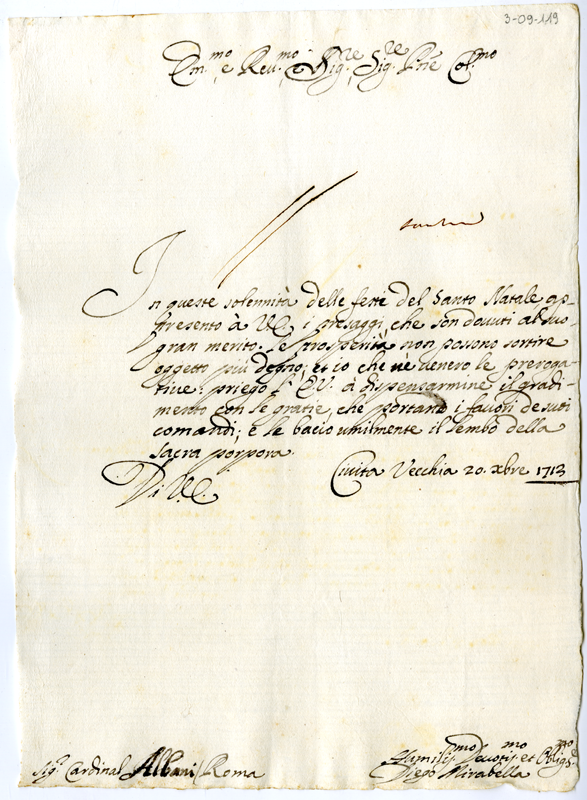 3-09-119
Em.mo e Rev.mo Sig.re Sig.re P̃ne Col.mo
In queste solennità delle feste del Santo Natale ap-
presento à V.E. i presaggi, che son dovuti al suo
gran merito. Le prosperità non possono sortire
oggetto più degno; et io che nè venero le preroga-
tive: priego l'E.V. à dispensarmine il gradi-
mento con le gratie, che portano i favori de suoi
comandi; e le bacio umilmente il lembo della
sacra porpora.
Civita Vecchia 20. xbre 1713
Di V.E.
Sig.r Cardinal Albani / Roma
Humiliss.mo Devotiss.mo et Oblig.mo
Diego Mirabella